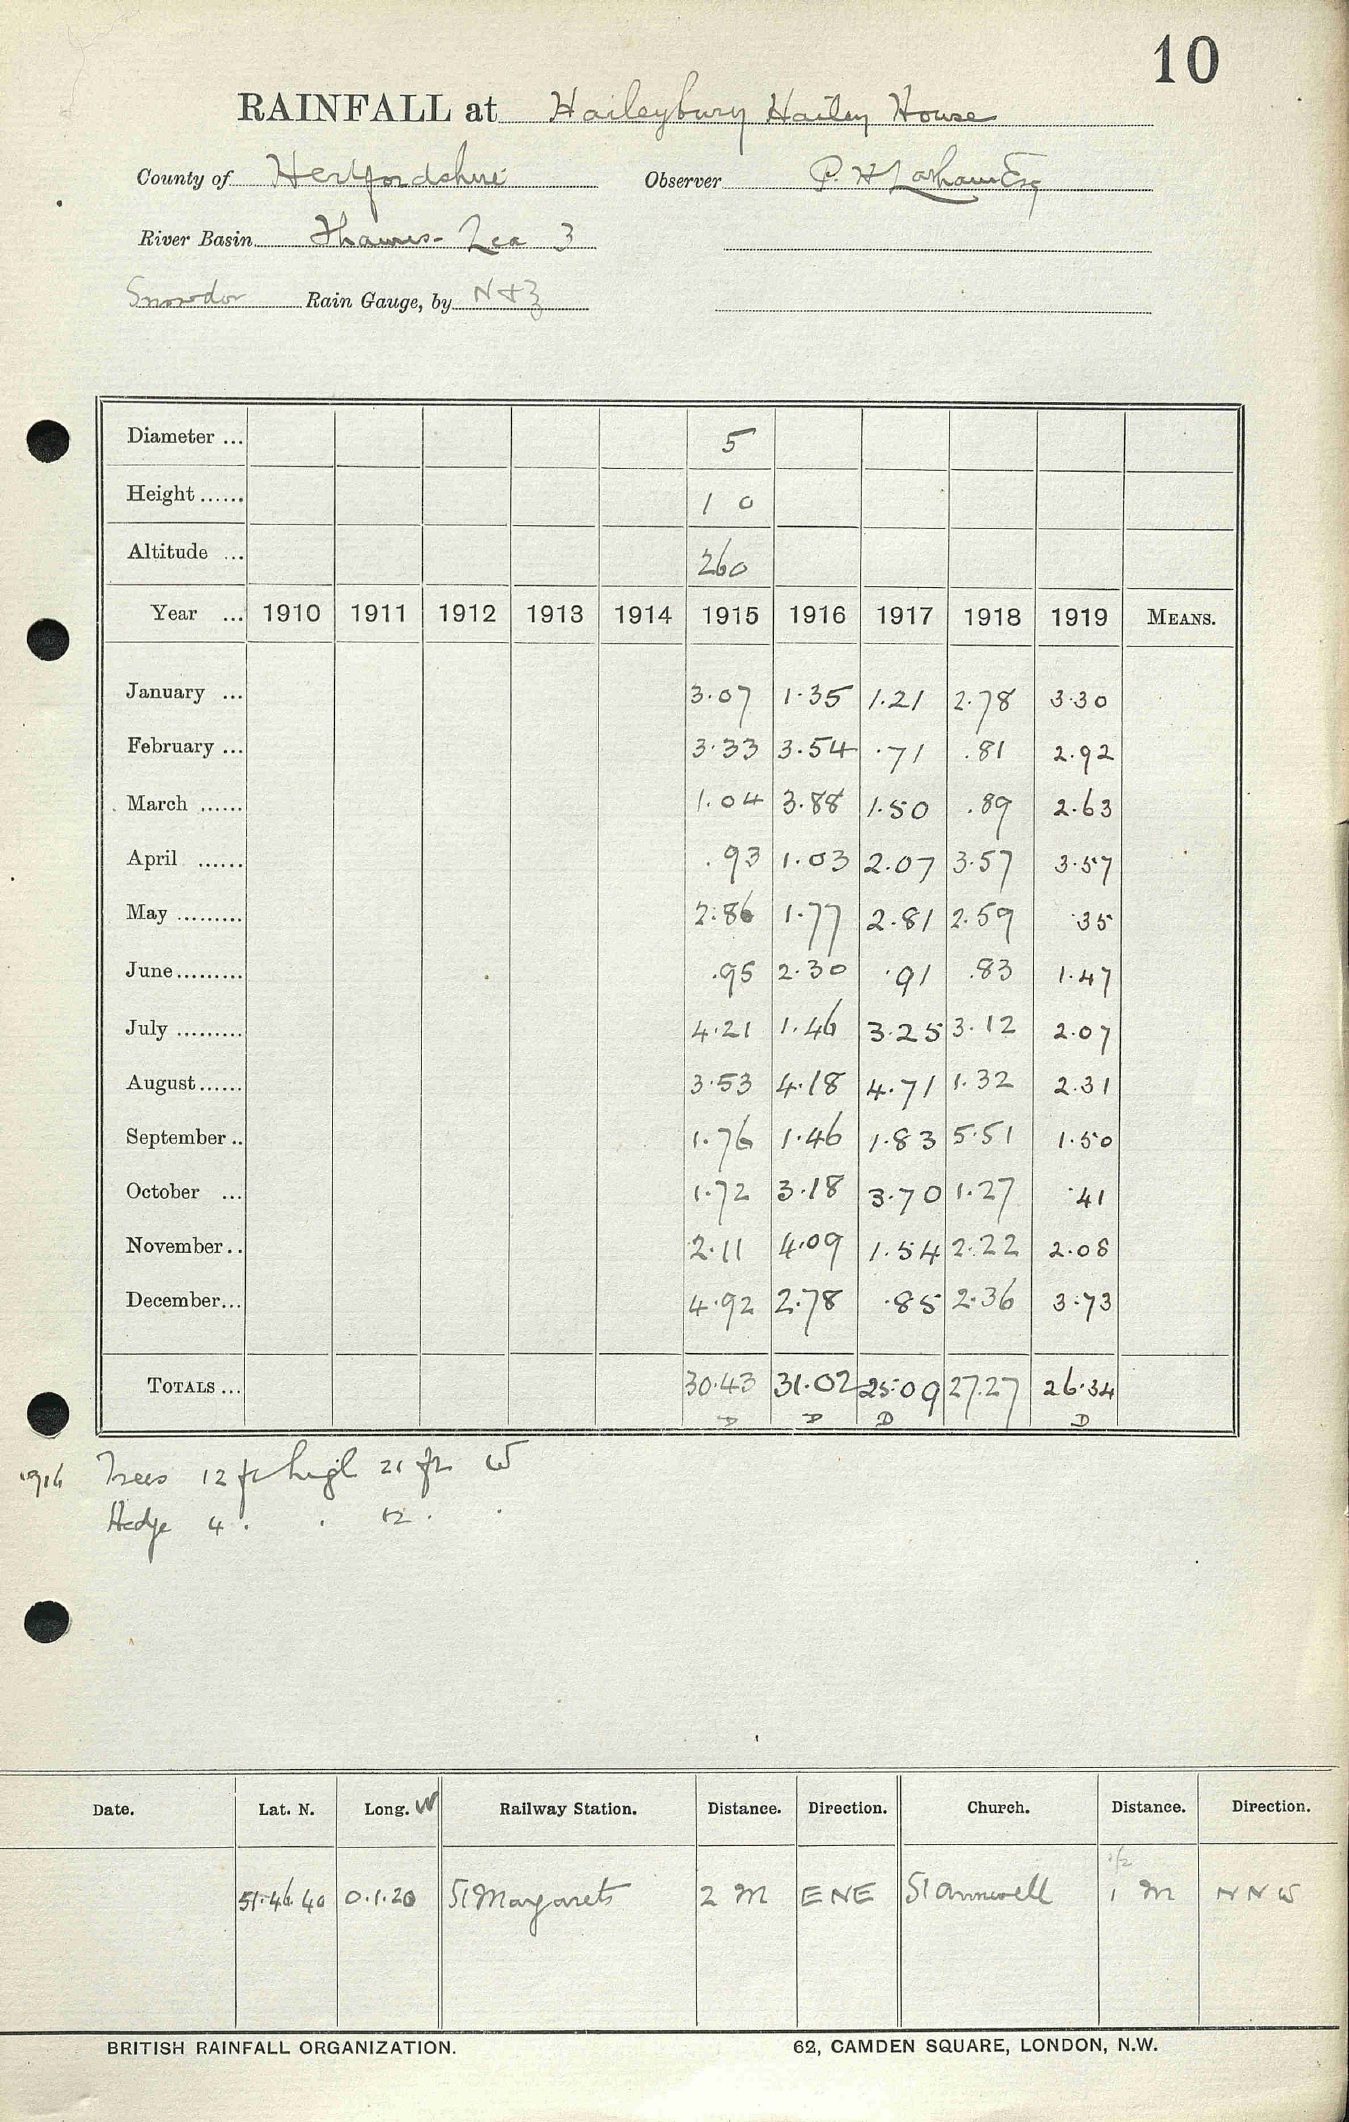 10
RAINFALL at Haileybury Hailey House
County of Hertfordshire Observer P. H Latham Esq
River Basin Thames - Lea 3
Snowdon Rain Gauge, by N & Z
Diameter ... 5
Height ...... 1 0
Altitude ... 260
Year ... 1910 1911 1912 1913 1914 1915 1916 1917 1918 1919 MEANS.
January ... 3.07 1.35 1.21 2.78 3.30
February ... 3.33 3.54 .71 .81 2.92
March ...... 1.04 3.88 1.50 .89 2.63
April ...... .93 1.03 2.07 3.57 3.57
May ......... 2.86 1.77 2.81 2.59 .35
June ......... .95 2.30 .91 .83 1.47
July ......... 4.21 1.46 3.25 3.12 2.07
August ...... 3.53 4.18 4.71 1.32 2.31
September .. 1.76 1.46 1.83 5.51 1.50
October ... 1.72 3.18 3.70 1.27 .41
November .. 2.11 4.09 1.54 2.22 2.08
December ... 4.92 2.78 .85 2.36 3.73
TOTALS ... 30.43 31.02 25.09 27.27 26.34
D D D D
1916 Trees 12 ft high 21 ft W
Hedge 4 . . 12 . .
Date. Lat. N. Long. W Railway Station. Distance. Direction. Church. Distance. Direction.
1/2
51.46.40 0.1.20 St Margarets 2 M ENE St 1 M NNW
BRITISH RAINFALL ORGANIZATION. 62, CAMDEN SQUARE, LONDON, N.W.